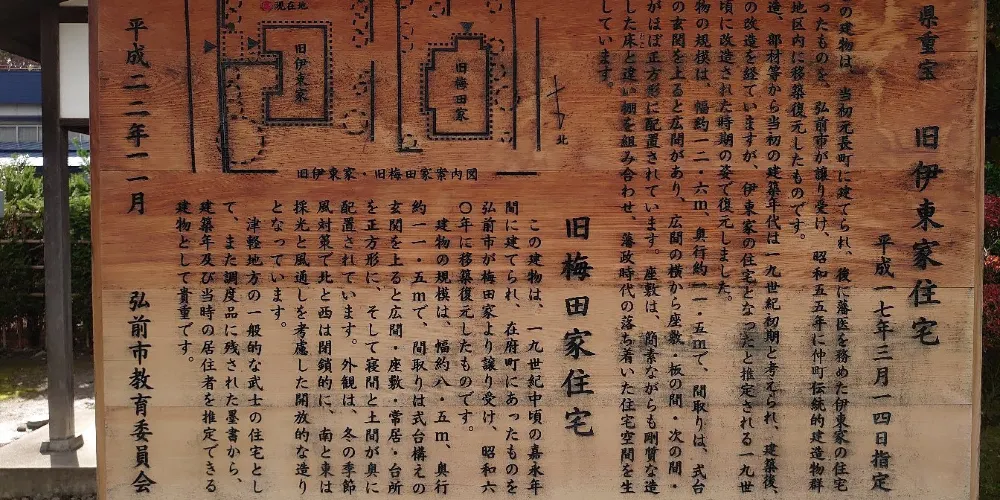 県重宝
旧伊東家住宅
平成一七年三月一四日指定
の建物は、当初元長町に建てられ、後に藩医を務めた伊東家の住宅
ったものを、弘前市が譲り受け、昭和五五年に仲町伝統的建造物群
地区内に移築復元したものです。
造、部材等から当初の建築年代は一九世紀初期と考えられ、建築後、
の改造を経ていますが、伊東家の住宅となったと推定される一九世
頃に改造された時期の姿で復元しました。
物の規模は、幅約一二・六m、奥行約一一・五mで、間取りは、式台
の玄関を上ると広間があり、広間の横から座敷・板の間・次の間・
がほぼ正方形に配置されています。座敷は、簡素ながらも剛質な造
した床と違い棚を組み合わせ、藩政時代の落ち着いた住宅空間を生
しています。
旧梅田家住宅
この建物は、一九世紀中頃の嘉永年
間に建てられ、在府町にあったものを
弘前市が梅田家より譲り受け、昭和六
〇年に移築復元したものです。
建物の規模は、幅約八・五m、奥行
約一一・五mで、間取りは式台構えの
玄関を上ると広間・座敷・常居・台所
を正方形に、そして寝間と土間が奥に
配置されています。外観は、冬の季節
風対策で北と西は閉鎖的に、南と東は
採光と風通しを考慮した開放的な造り
となっています。
津軽地方の一般的な武士の住宅とし
て、また調度品に残された墨書から、
建築年及び当時の居住者を推定できる
建物として貴重です。
現在地
旧伊東家
旧梅田家
北
旧伊東家、旧梅田家案内図
平成二二年一一月
弘前市教育委員会